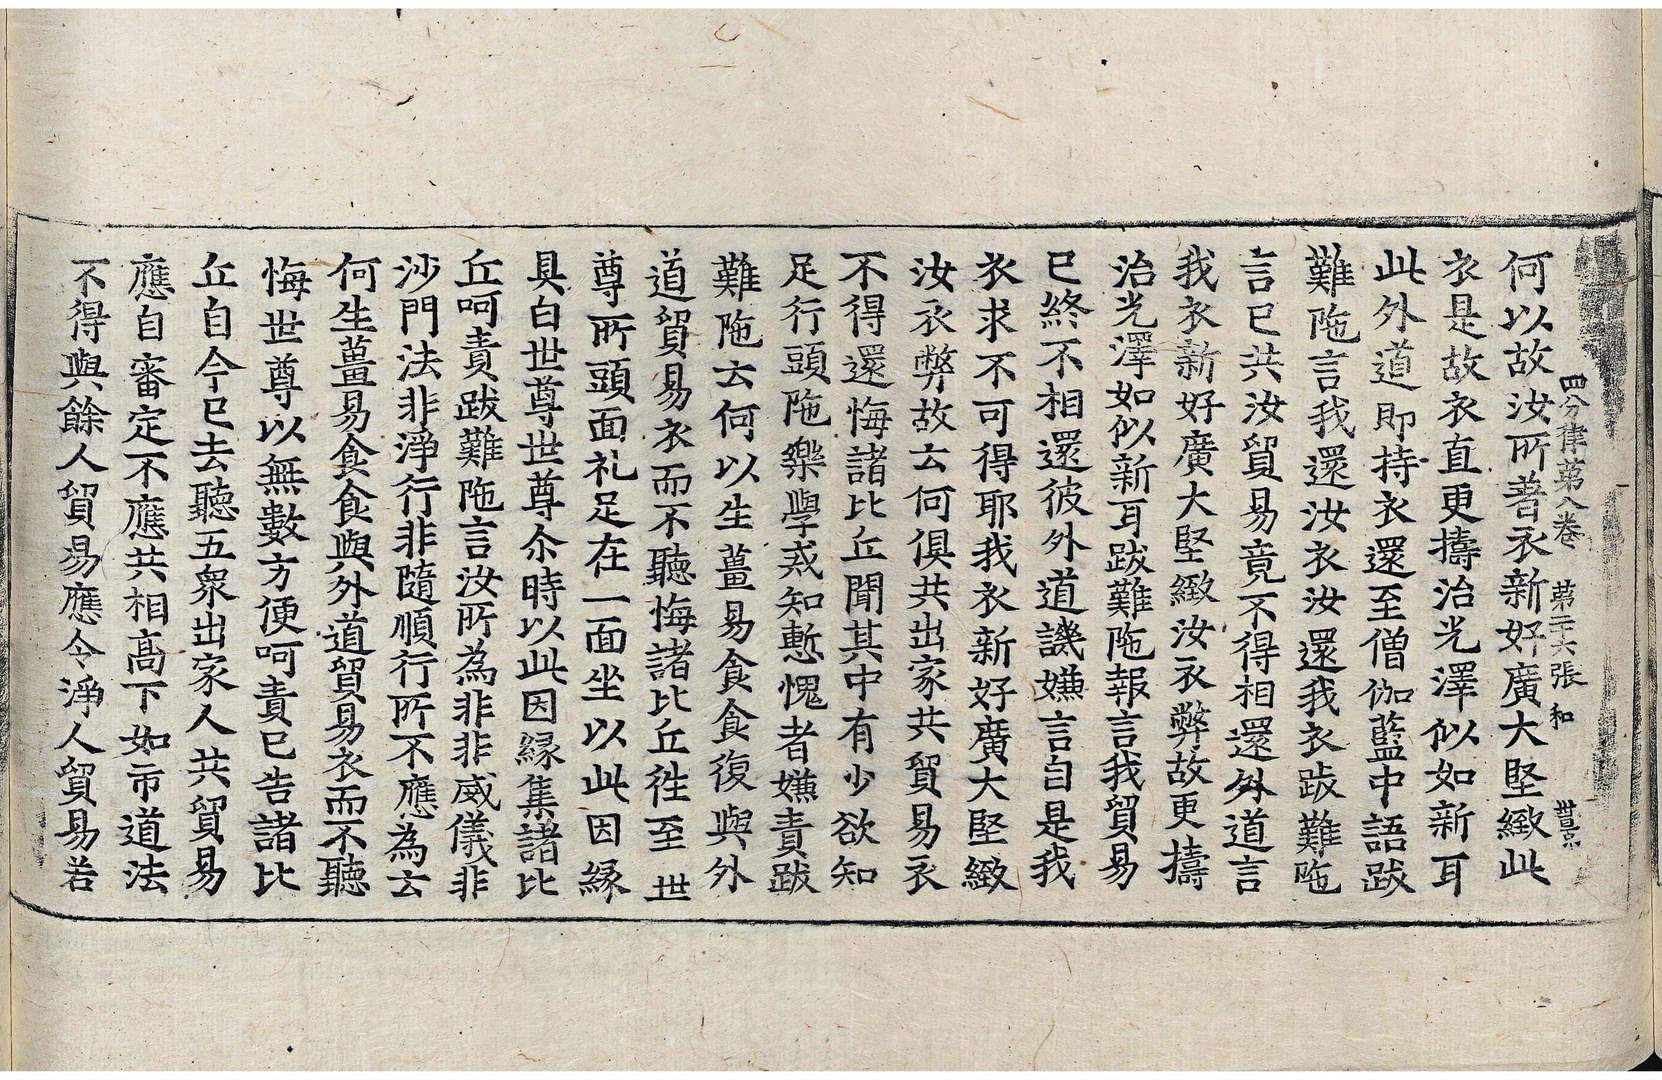 四分律第八卷　第二十六張　和
何以故汝所著衣新好廣大堅緻此
衣是故衣直更擣治光澤似如新耳
此外道即持衣還至僧伽藍中語跋
難陁言我還汝衣汝還我衣跋難陁
言已共汝貿易竟不得相還外道言
我衣新好廣大堅緻汝衣弊故更擣
治光澤如似新耳跋難陁報言我貿易
已終不相還彼外道譏嫌言自是我
衣求不可得耶我衣新好廣大堅緻
汝衣弊故云何俱共出家共貿易衣
不得還悔諸比丘聞其中有少欲知
足行頭陁樂學戒知慙愧者嫌責跋
難陁云何以生薑易食食復與外
道貿易衣而不聽悔諸比丘往至世
尊所頭面礼足在一面坐以此因緣
具白世尊世尊尒時以此因緣集諸比
丘呵責跋難陁言汝所為非非威儀非
沙門法非淨行非隨順行所不應為云
何生薑易食食與外道貿易衣而不聽
悔世尊以無數方便呵責已告諸比
丘自今已去聽五眾出家人共貿易
應自審定不應共相高下如市道法
不得與餘人貿易應令淨人貿易若